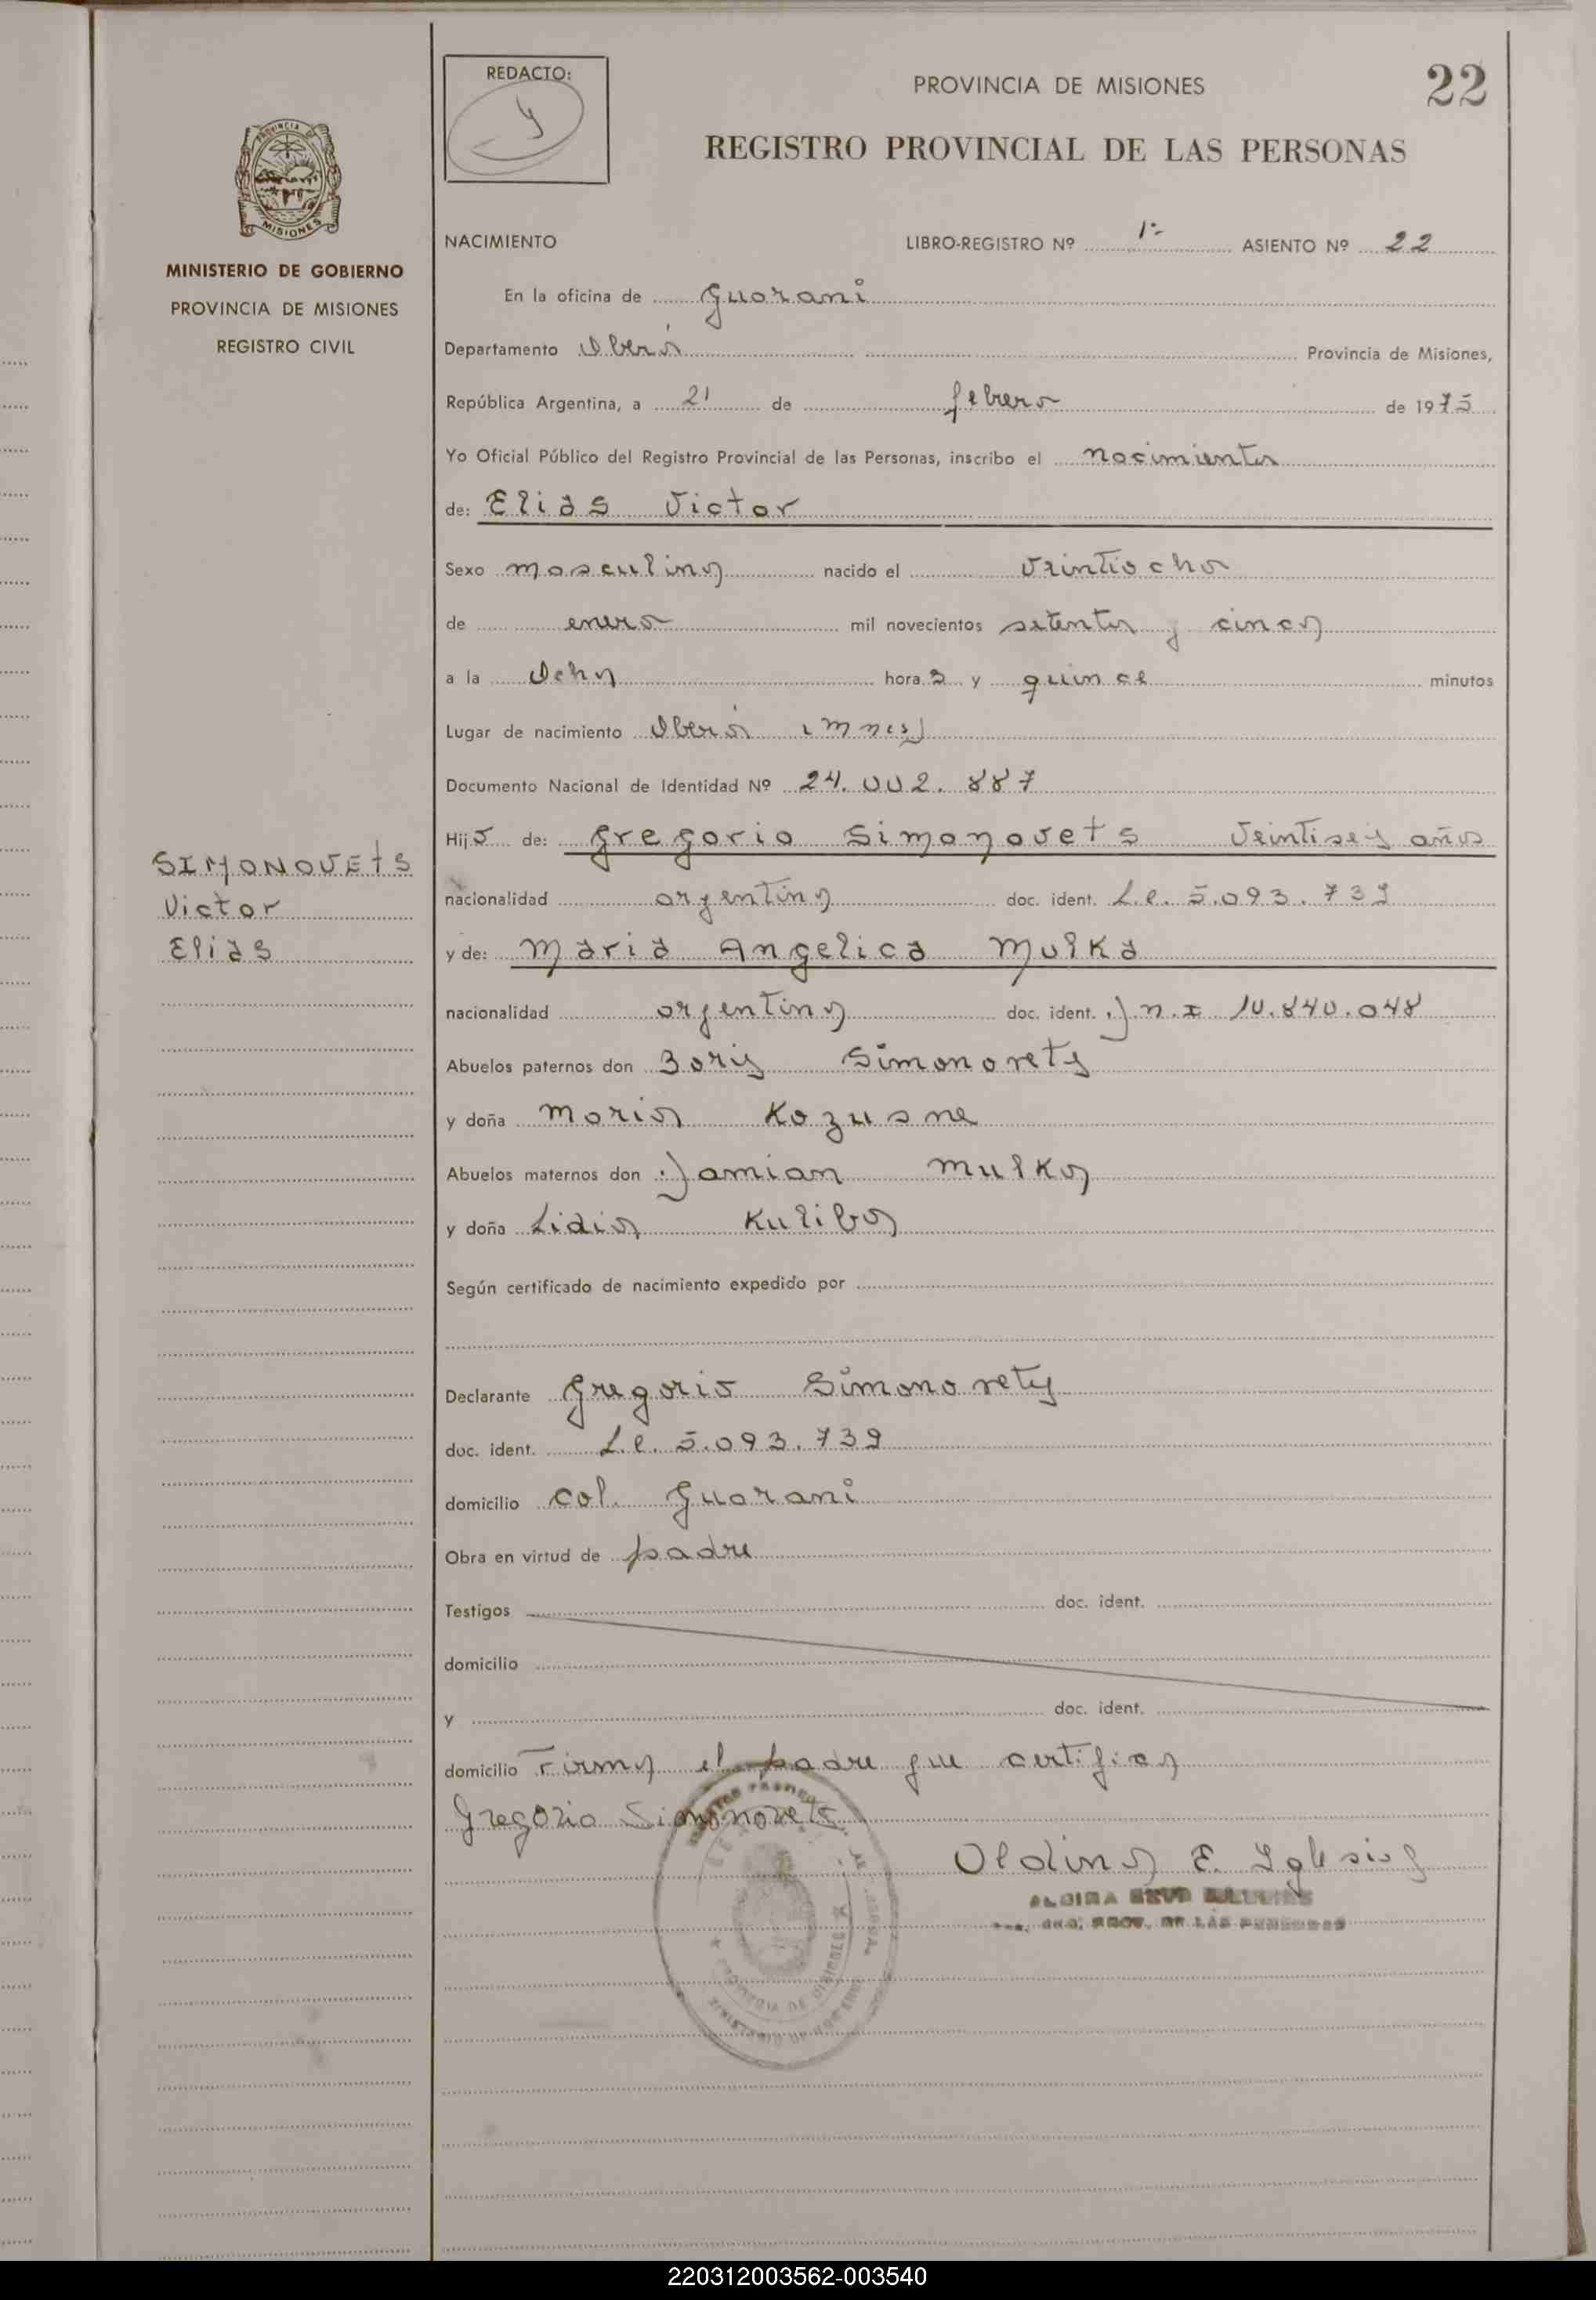 REDACTO:
PROVINCIA DE MISIONES
22
REGISTRO PROVINCIAL DE LAS PERSONAS
PROVINCIA DE
MISIONES
MINISTERIO DE GOBIERNO
PROVINCIA DE MISIONES
REGISTRO CIVIL
NACIMIENTO LIBRO-REGISTRO Nº 1º ASIENTO Nº 22
En la oficina de Guarani
Departamento Oberá Provincia de Misiones,
República Argentina, a 21 de febrero de 1975
Yo Oficial Público del Registro Provincial de las Personas, inscribo el nacimiento
de: Elias Victor
Sexo masculino nacido el veintiocho
de enero mil novecientos setenta y cinco
a la ocho horas y quince minutos
Lugar de nacimiento Oberá (Mnes)
Documento Nacional de Identidad Nº 24.002.887
Hijo de: Gregorio Simonovets veintiseis años
SIMONOVEtS
Victor
Elias
nacionalidad argentina doc. ident. L.e. 5.093.739
y de: Maria Angelica Mulka
nacionalidad argentina doc. ident. D.N.I 10.840.048
Abuelos paternos don Boris Simonovets
y doña Maria Kozusne
Abuelos maternos don Damian Mulka
y doña Lidia Kuliba
Según certificado de nacimiento expedido por
Declarante Gregorio Simonovets
doc. ident. L.e. 5.093.739
domicilio Col. Guarani
Obra en virtud de padre
Testigos doc. ident.
domicilio
y doc. ident.
domicilio Firma el padre que certifica
Gregorio Simonovets
E. Iglesias
PROVINCIA DE MISIONES
MINISTERIO DE GOBIERNO
220312003562-003540